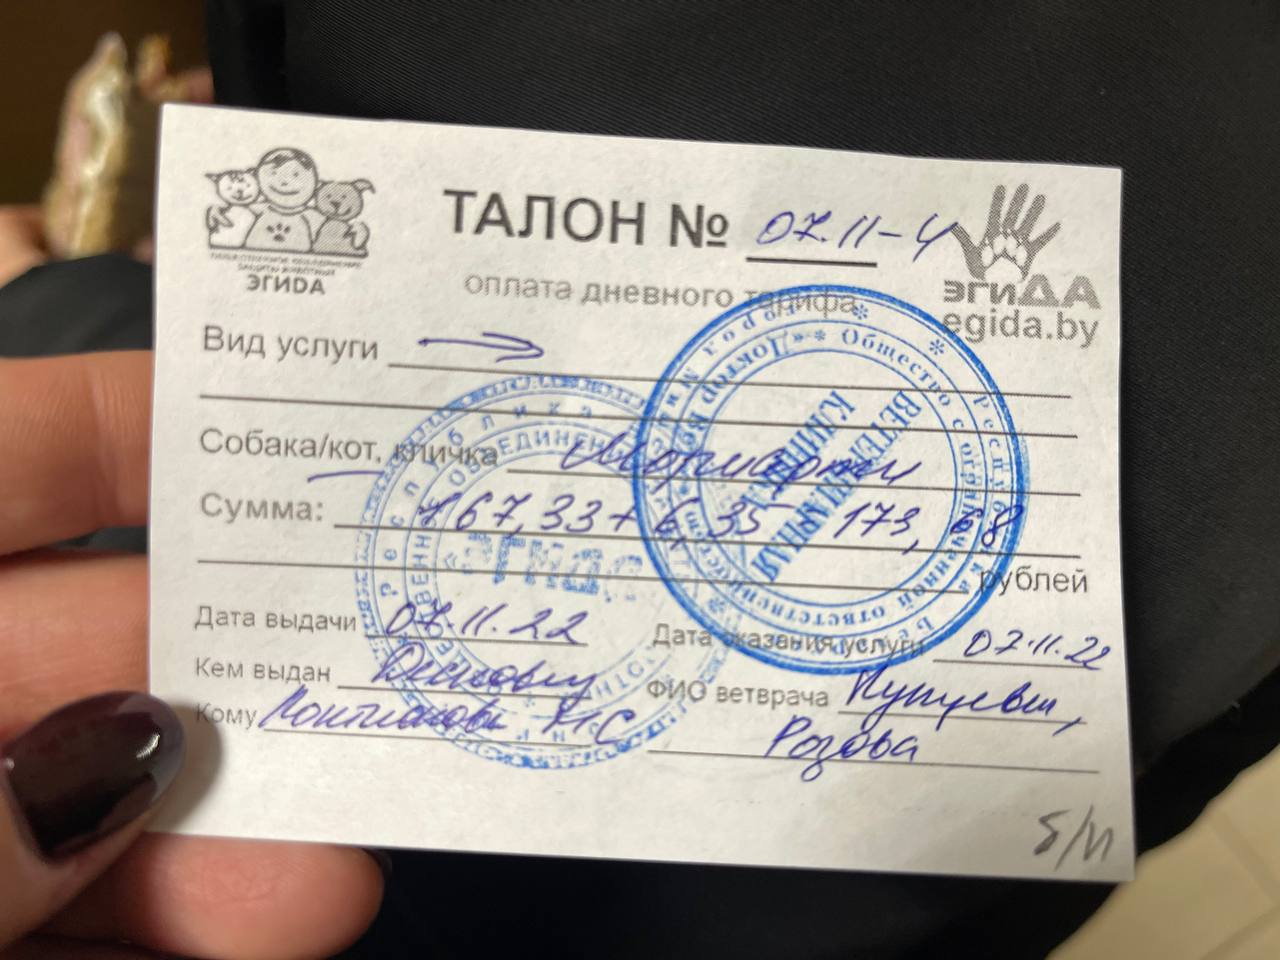 ЭГИДА
ТАЛОН № 07.11-4
ЭГИДА
egida.by
оплата дневного тарифа
Вид услуги
Собака/кот, кличка Мориарти
Сумма: 167,33+6,35 173,68
рублей
Дата выдачи 07.11.22
Дата оказания услуги 07.11.22
Кем выдан
ФИО ветврача
Кому
Розова
Б/Н
Республика
«ЭГИДА»
Общество с ограниченной ответственностью
«Доктор Вет»
ВЕТЕРИНАРНАЯ
КЛИНИКА